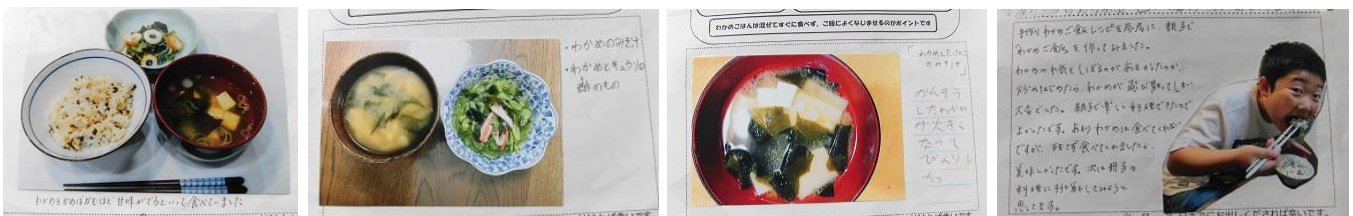 わかめをかめばかむほど甘味がでるといって食べていました
・わかめのみそ汁
・わかめとキュウリの
酢のもの
わかめごはんは混ぜてすぐに食べず、ご飯によくなじませるのがポイントです
かんそう
したわかめ
が大きく
なって
びっくりし
た。
手作りわかめご飯レシピを参考に、親子で
わかめご飯を作ってみました。
わかめの水気をしぼるのが
炒めはじめたら、わかめが飛び散ってしまい
大変でした。親子で楽しく料理できたので
よかったです。あまりわかめは食べてくれない
ですが、残さず食べてくれました。
美味しかったです。次は親子の
料理に挑戦してみようと
思ってます。